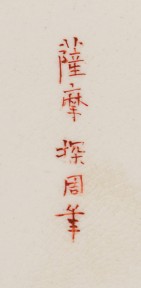 薩摩 探周筆